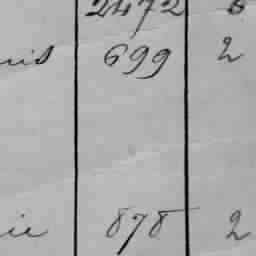 2472 6
nis 699 2
ie 878 2